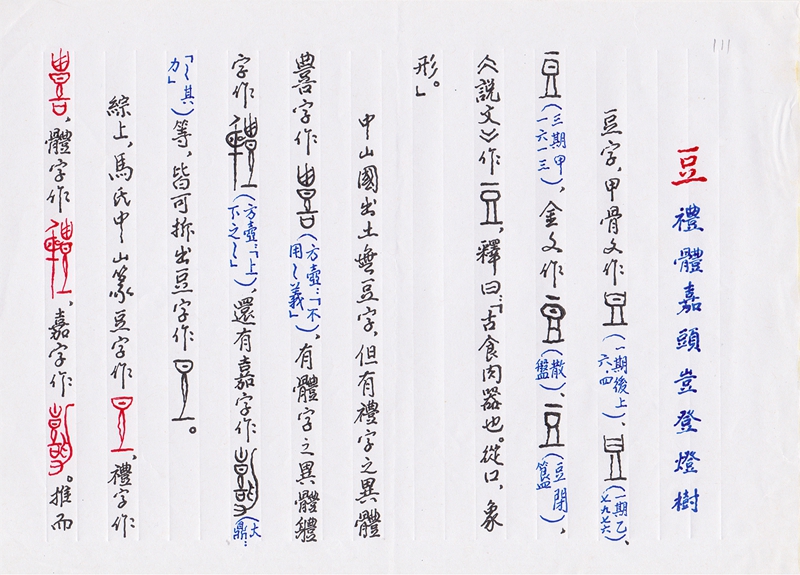 111
豆 禮體嘉頭豈登燈樹
豆字，甲骨文作（一期後上六．四）、（一期乙七九七六）、
（三期甲一六一三），金文作（散盤）、（豆閉簋），
《說文》作，釋曰：「古食肉器也。從口，象
形。」
中山國出土無豆字，但有禮字之異體
豊字作（方壺：「不用〻義」），有體字之異體軆
字作（方壺：「上下之〻」），還有嘉字作（大鼎：
「〻其力」）等，皆可拆出豆字作。
綜上，馬氏中山篆豆字作，禮字作
，體字作，嘉字作。推而